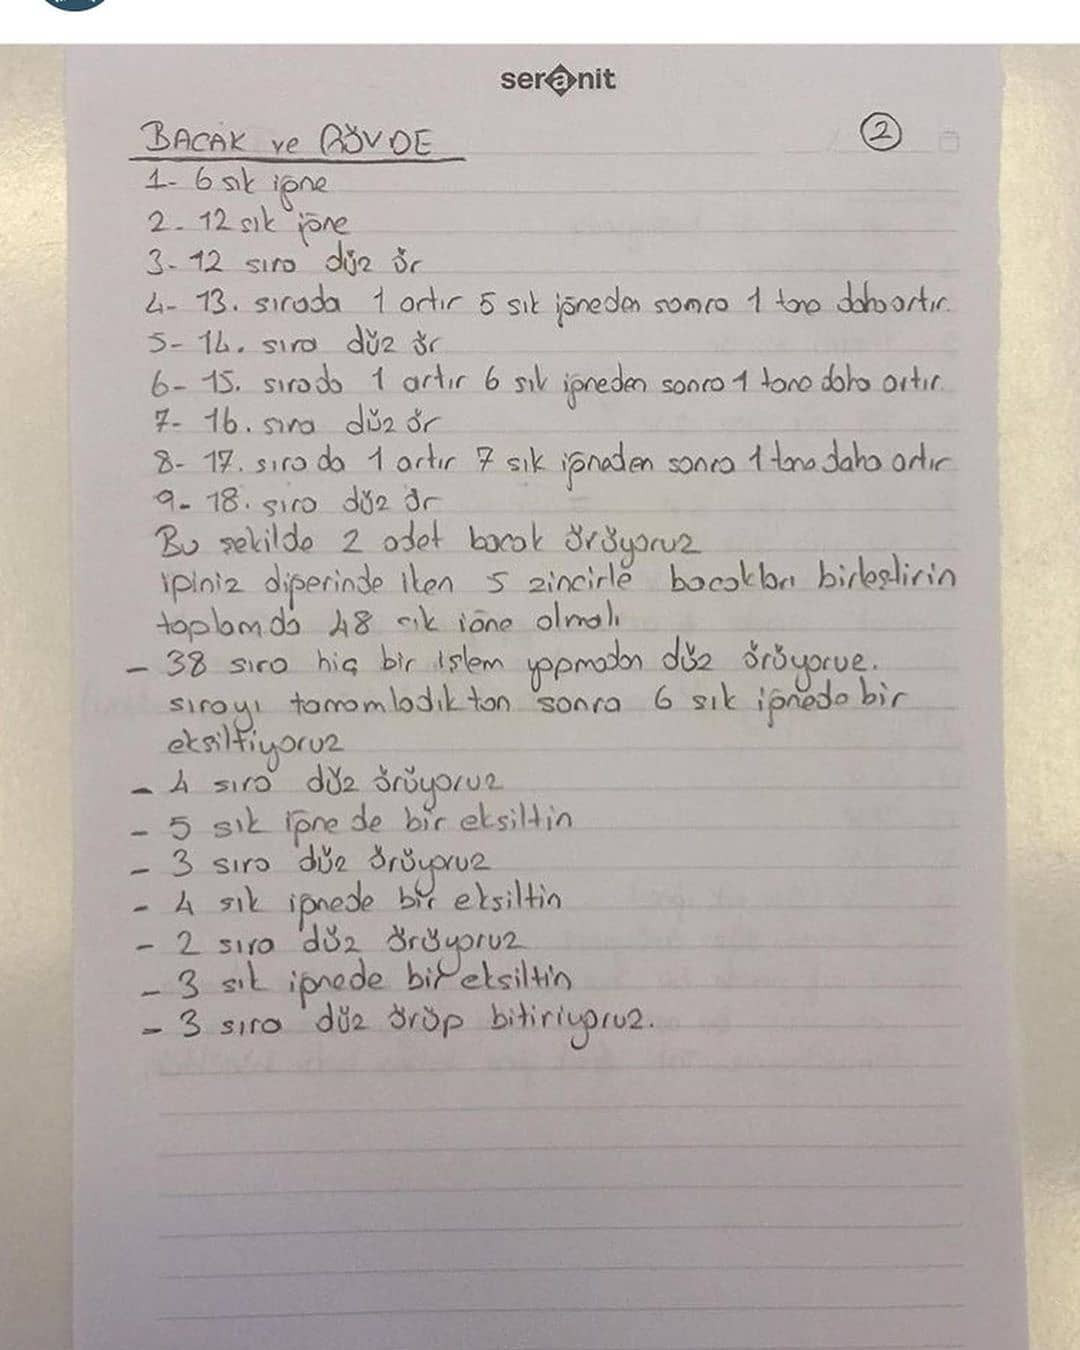 seranit
BACAK ve GÖVDE
2
1- 6 sık iğne
2- 12 sık iğne
3- 12 sıra düz ör
4- 13. sırada 1 artır 5 sık iğneden sonra 1 tane daha artır.
5- 14. sıra düz ör
6- 15. sırada 1 artır 6 sık iğneden sonra 1 tane daha artır.
7- 16. sıra düz ör
8- 17. sırada 1 artır 7 sık iğneden sonra 1 tane daha artır
9- 18. sıra düz ör
Bu şekilde 2 adet bacak örüyoruz
ipiniz diğerinde iken 5 zincirle bacakları birleştirin
toplamda 48 sık iğne olmalı
- 38 sıra hiç bir işlem yapmadan düz örüyorue.
sırayı tamamladıktan sonra 6 sık iğnede bir
eksiltiyoruz
- 4 sıra düz örüyoruz
- 5 sık iğne de bir eksiltin
- 3 sıra düz örüyoruz
- 4 sık iğnede bir eksiltin
- 2 sıra düz örüyoruz
- 3 sık iğnede bir eksiltin
- 3 sıra düz örüp bitiriyoruz.